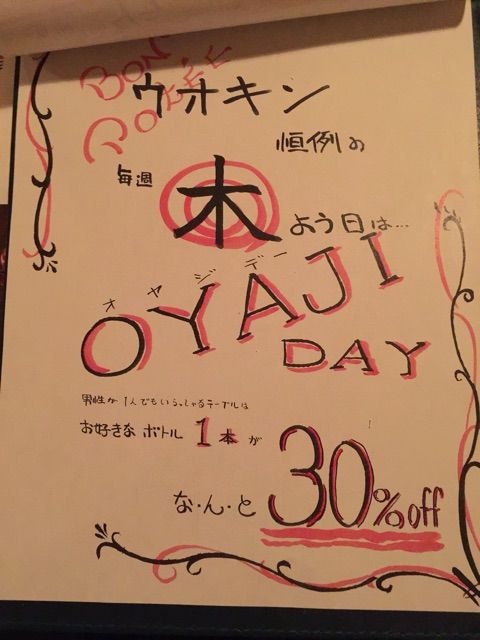 BON
SOIRÉE
ウオキン
恒例の
毎週
木
よう日は…
オヤジデー
OYAJI
DAY
男性が1人でもいらっしゃるテーブルは
お好きなボトル 1本が
な・ん・と 30%off